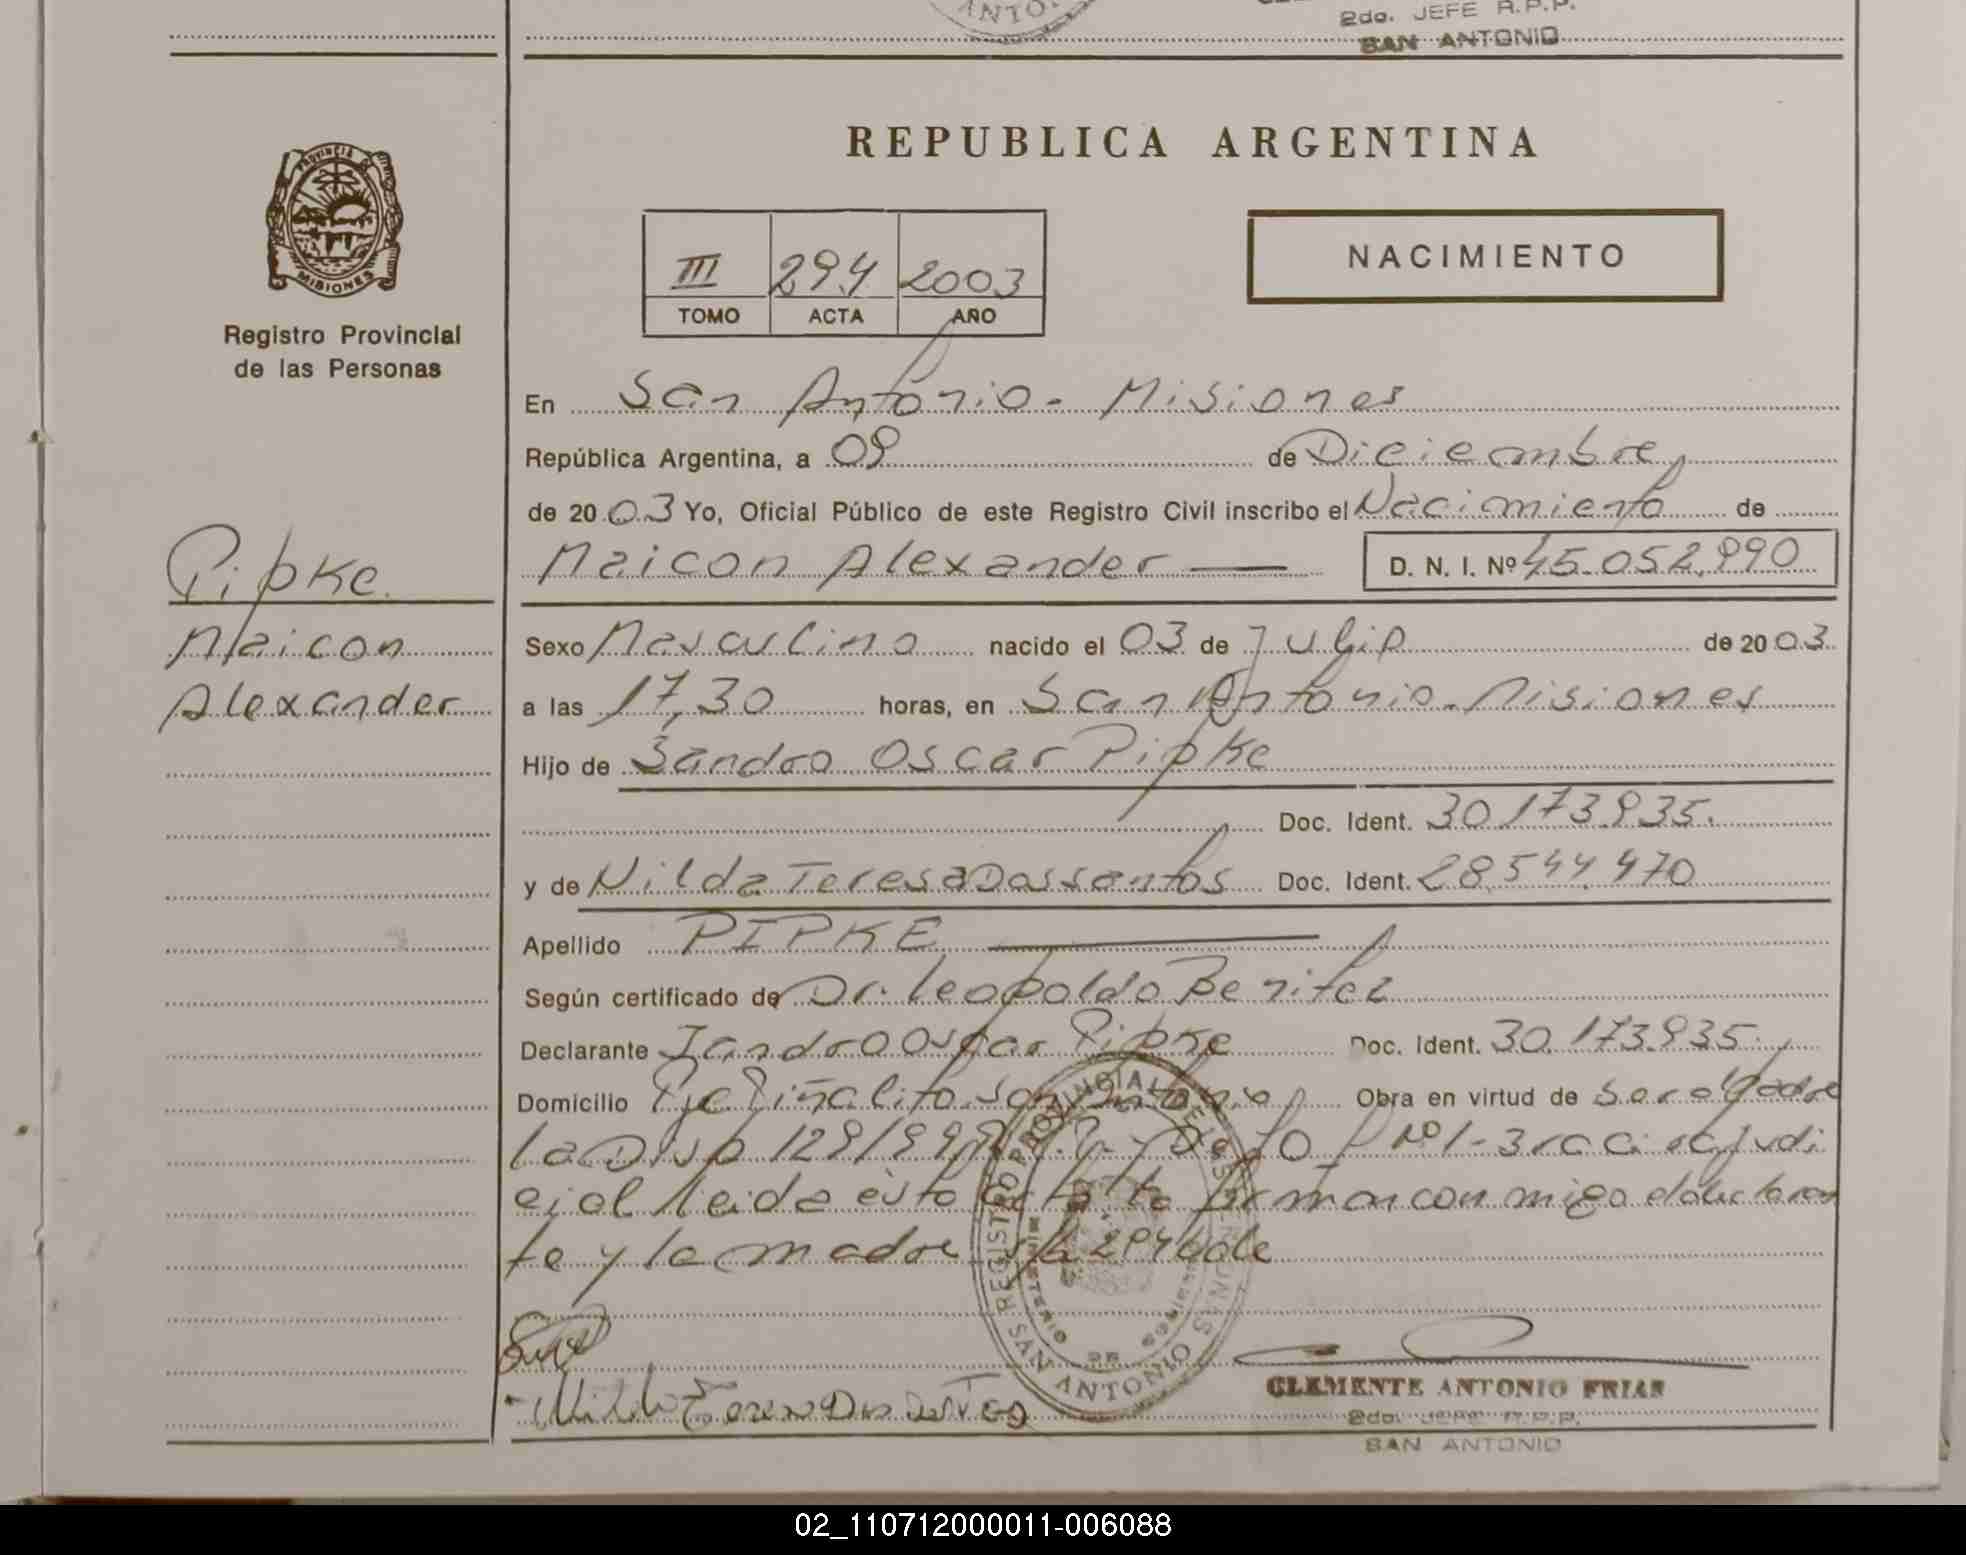 ANTO
2do. JEFE R.P.P.
SAN ANTONIO
REPUBLICA ARGENTINA
PROVINCIA DE
MISIONES
Registro Provincial
de las Personas
III 294 2003
TOMO ACTA AÑO
NACIMIENTO
En San Antonio - Misiones
República Argentina, a 09 de Diciembre
de 2003 Yo, Oficial Público de este Registro Civil inscribo el Nacimiento de
Maicon Alexander D. N. I. Nº 45.052.990
Pipke
Maicon
Alexander
Sexo Masculino nacido el 03 de Julio de 2003
a las 17,30 horas, en San Antonio - Misiones
Hijo de Sandro Oscar Pipke
Doc. Ident. 30.173.935.
y de Nilda Teresa Dossantos Doc. Ident. 28.544.470
Apellido PIPKE
Según certificado de Dr. Leopoldo Benitez
Declarante Sandro Oscar Pipke Doc. Ident. 30.173.935.
Domicilio Pje Piñalito San Antonio Obra en virtud de ser el Padre
la Disp 129/999 Nº 1-
cial leida esta acta la firman conmigo el declaran
te y la madre
Nilda Teresa Dossantos
REGISTRO PROVINCIAL DE LAS PERSONAS
MINISTERIO DE GOBIERNO
SAN ANTONIO
CLEMENTE ANTONIO FRIAS
2do. JEFE R.P.P.
SAN ANTONIO
02_110712000011-006088